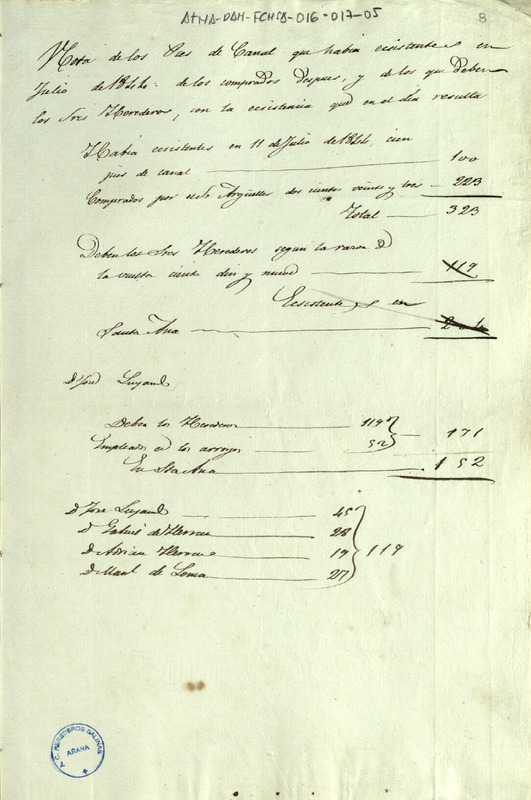 ATHA-DAH-FCHSA-016-017-05
8
Nota de los Pies de Canal que habia ecsistentes en
Julio de 1844: de los comprados despues, y de los que deben
los Sres Herederos, con la ecsistencia que en el dia resulta
Habia ecsistentes en 11 de Julio de 1844, cien
pies de canal 100
Comprados por Argüelles dos cientos veinte y tres 223
Total 323
Deben los Sres Herederos segun la razon de
la vuelta ciento diez y nueve 119
Ecsistentes en
Santa Ana 204
D José Luyand
Deben los Herederos 119
Empleados en los arroyos 52 171
En Sta Ana 152
D Jose Luyand 45
D Gabriel de Herran 28
D Adrian Herran 19 119
D Manl de Loma 27
C. HEREDEROS SALINAS
AÑANA